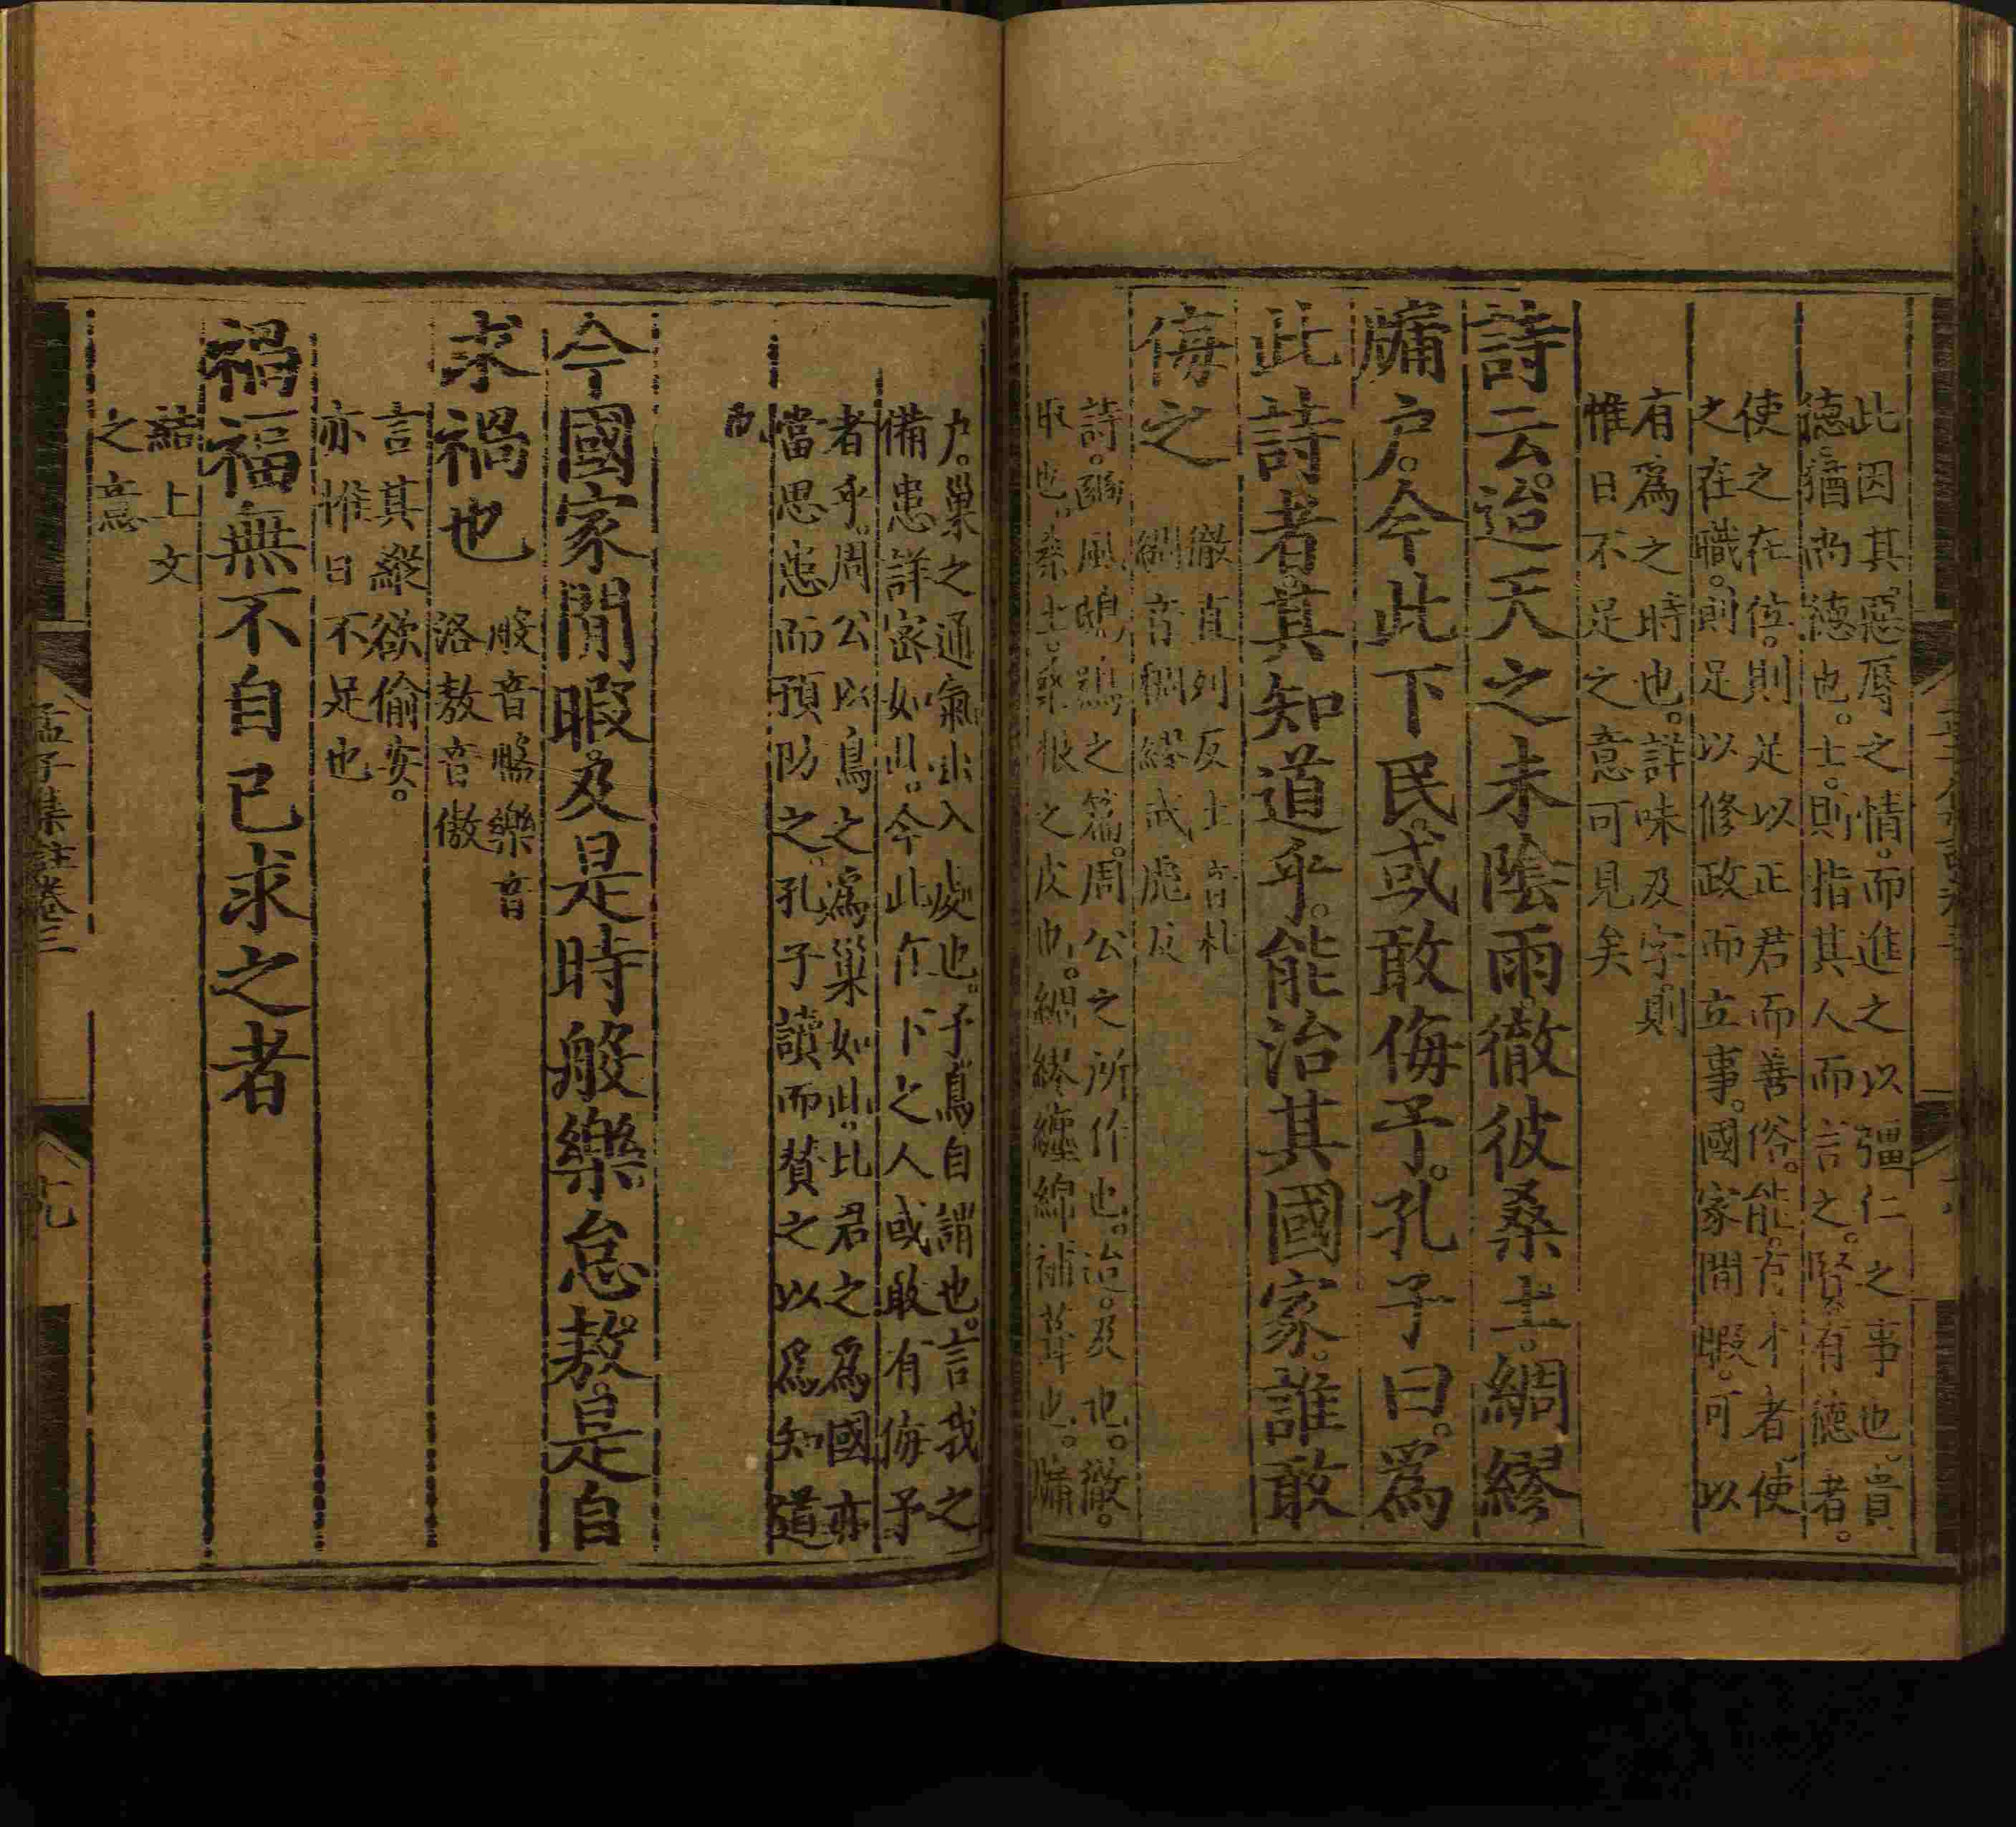 此因其惡辱之情。而進之以彊仁之事也。貴
德。猶尚德也。士。則指其人而言之。賢。有德者。
使之在位。則足以正君而善俗。能。有才者。使
之在職。則足以修政而立事。國家閒暇。可以
有爲之時也。詳味及字。則
惟日不足之意可見矣
詩云。迨天之未陰雨。徹彼桑土。綢繆
牖户。今此下民。或敢侮予。孔子曰。爲
此詩者。其知道乎。能治其國家。誰敢
侮之
徹直列反土音杜
綢音稠繆武彪反
詩。豳風鴟鴞之篇。周公之所作也。迨。及也。徹。
取也。桑土。桑根之皮也。綢繆纏綿補葺也。牖
户。巢之通氣出入處也。予鳥自謂也。言我之
備患詳密如此。今此在下之人或敢有侮予
者乎。周公以鳥之爲巢如此。比君之爲國亦
當思患而預防之。孔子讀而贊之以爲知道
也
今國家閒暇。及是時般樂怠敖。是自
求禍也
般音盤樂音
洛敖音傲
言其縱欲偷安。
亦惟日不足也
禍福無不自己求之者
結上文
之意
孟子集註卷三
十九